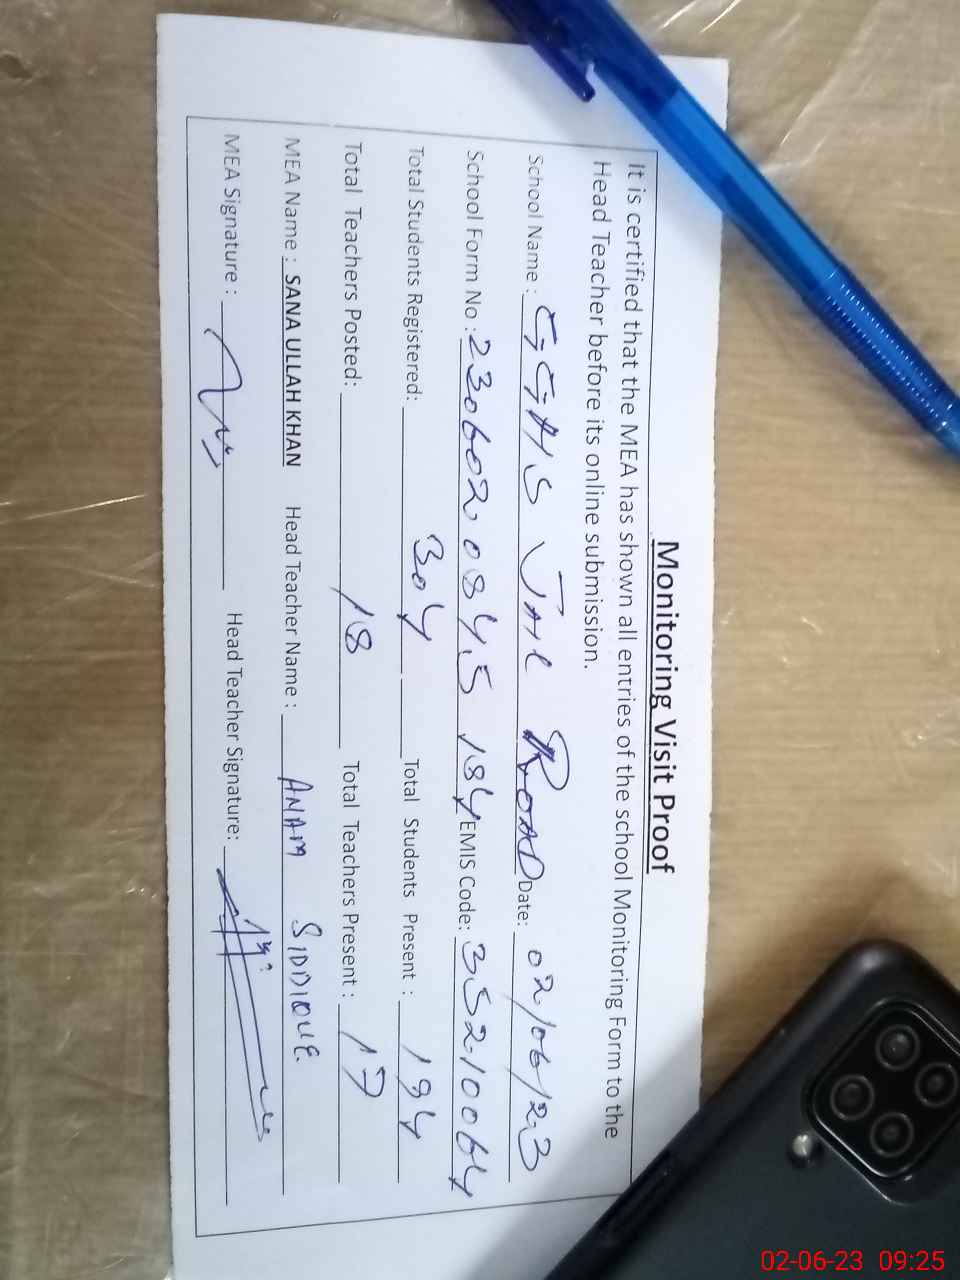 Monitoring Visit Proof
It is certified that the MEA has shown all entries of the school Monitoring Form to the
Head Teacher before its online submission.
School Name : GGHS JAIL ROAD Date: 02/06/23
School Form No : 2306020845184 EMIS Code: 35210064
Total Students Registered: 304 Total Students Present : 184
Total Teachers Posted: 18 Total Teachers Present : 17
MEA Name : SANA ULLAH KHAN Head Teacher Name : ANAM SIDDIQUE
MEA Signature : Head Teacher Signature:
02-06-23 09:25